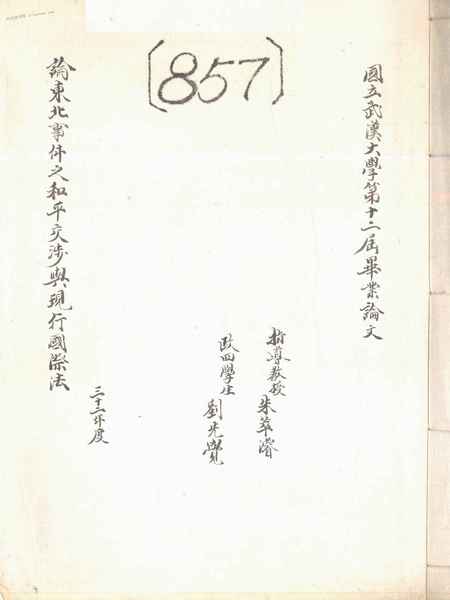 (857)
國立武漢大學第十二屆畢業論文
指導教授 朱萃濬
政四學生 劉先覺
論東北事件之和平交涉與現行國際法
三十二年度